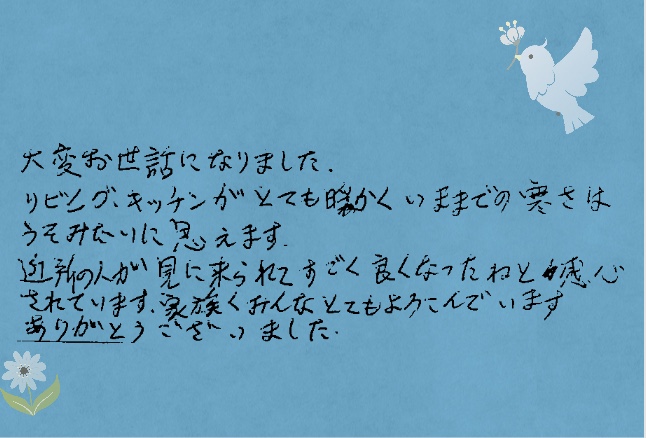 大変お世話になりました.
リビング、キッチンがとても暖かくいままでの寒さは
うそみたいに思えます.
近所の人が見に来られてすごく良くなったねと感心
されています.家族くみんなとてもよろこんでいます
ありがとうございました.